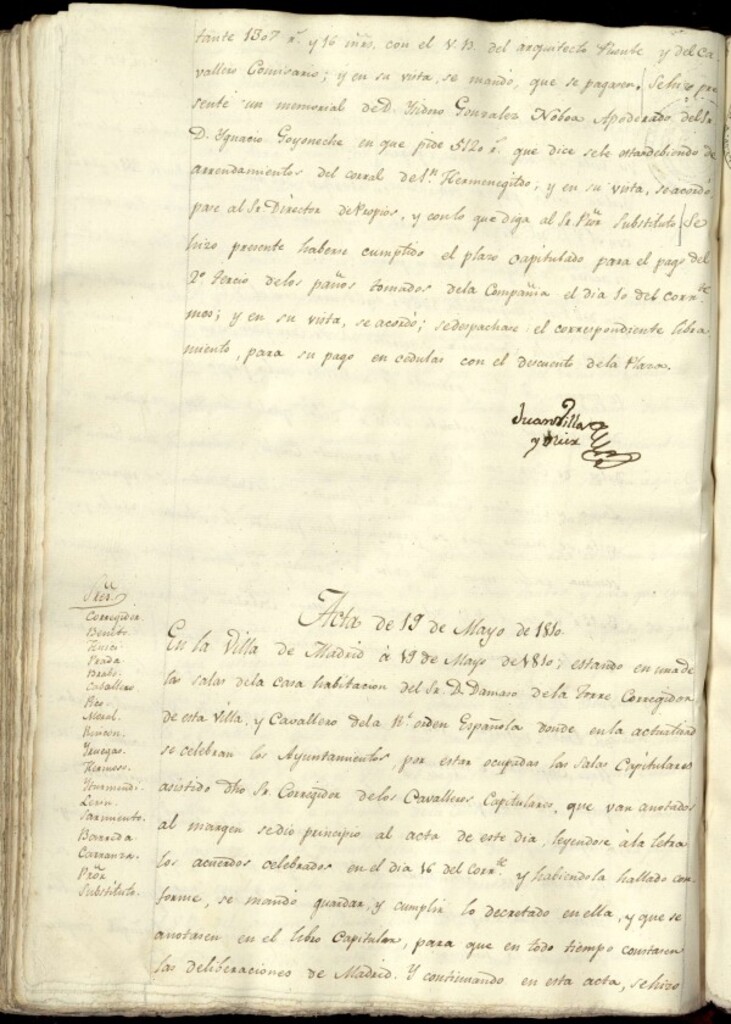 tante 1307 r.s y 16 mrs. con el V. B. del arquitecto Fuente y del Ca-
vallero Comisario; y en su vista, se mandó, que se pagaren. Se hizo pre
sente un memorial de D. Ysidro Gonzalez Nóboa Apoderado del Sr.
D. Ygnacio Goyoneche en que pide 5120 r.s que dice se le estan debiendo de
arrendamientos del corral de Sn. Hermenegildo; y en su vista, se acordó
pase al Sr. Director de Propios, y con lo que diga al Sr. Pror. Substituto. Se
hizo presente haberse cumplido el plazo capitulado para el pago del
2.º tercio de los paños tomados de la Compañia el dia 10 del corr.te
mes; y en su vista, se acordó; se despachase el correspondiente libra-
miento, para su pago en cedulas con el descuento de la Plaza.
Juan Villa
y
Acta de 19 de Mayo de 1810.
Sres.
Corregidor.
Benito.
Prada
Caballero
Moral.
Rincon.
Yruegas.
Hermoso.
Yturmendi.
Sarmiento.
Barreda
Carranza.
Pror.
Substituto.
En la Villa de Madrid á 19 de Mayo de 1810; estando en una de
las salas de la casa habitacion del Sr. D. Damaso de la Torre Corregidor
de esta Villa, y Cavallero de la Rl. orden Española donde en la actualidad
se celebran los Ayuntamientos, por estar ocupadas las Salas Capitulares
asistido dho Sr. Corregidor de los Cavalleros Capitulares, que van anotados
al margen se dió principio al acta de este dia, leyendose á la letra
los acuerdos celebrados en el dia 16 del corr.te y habiendola hallado con-
forme, se mandó guardar, y cumplir lo decretado en ella, y que se
anotasen en el libro Capitular, para que en todo tiempo constasen
las deliberaciones de Madrid. Y continuando en esta acta, se hizo